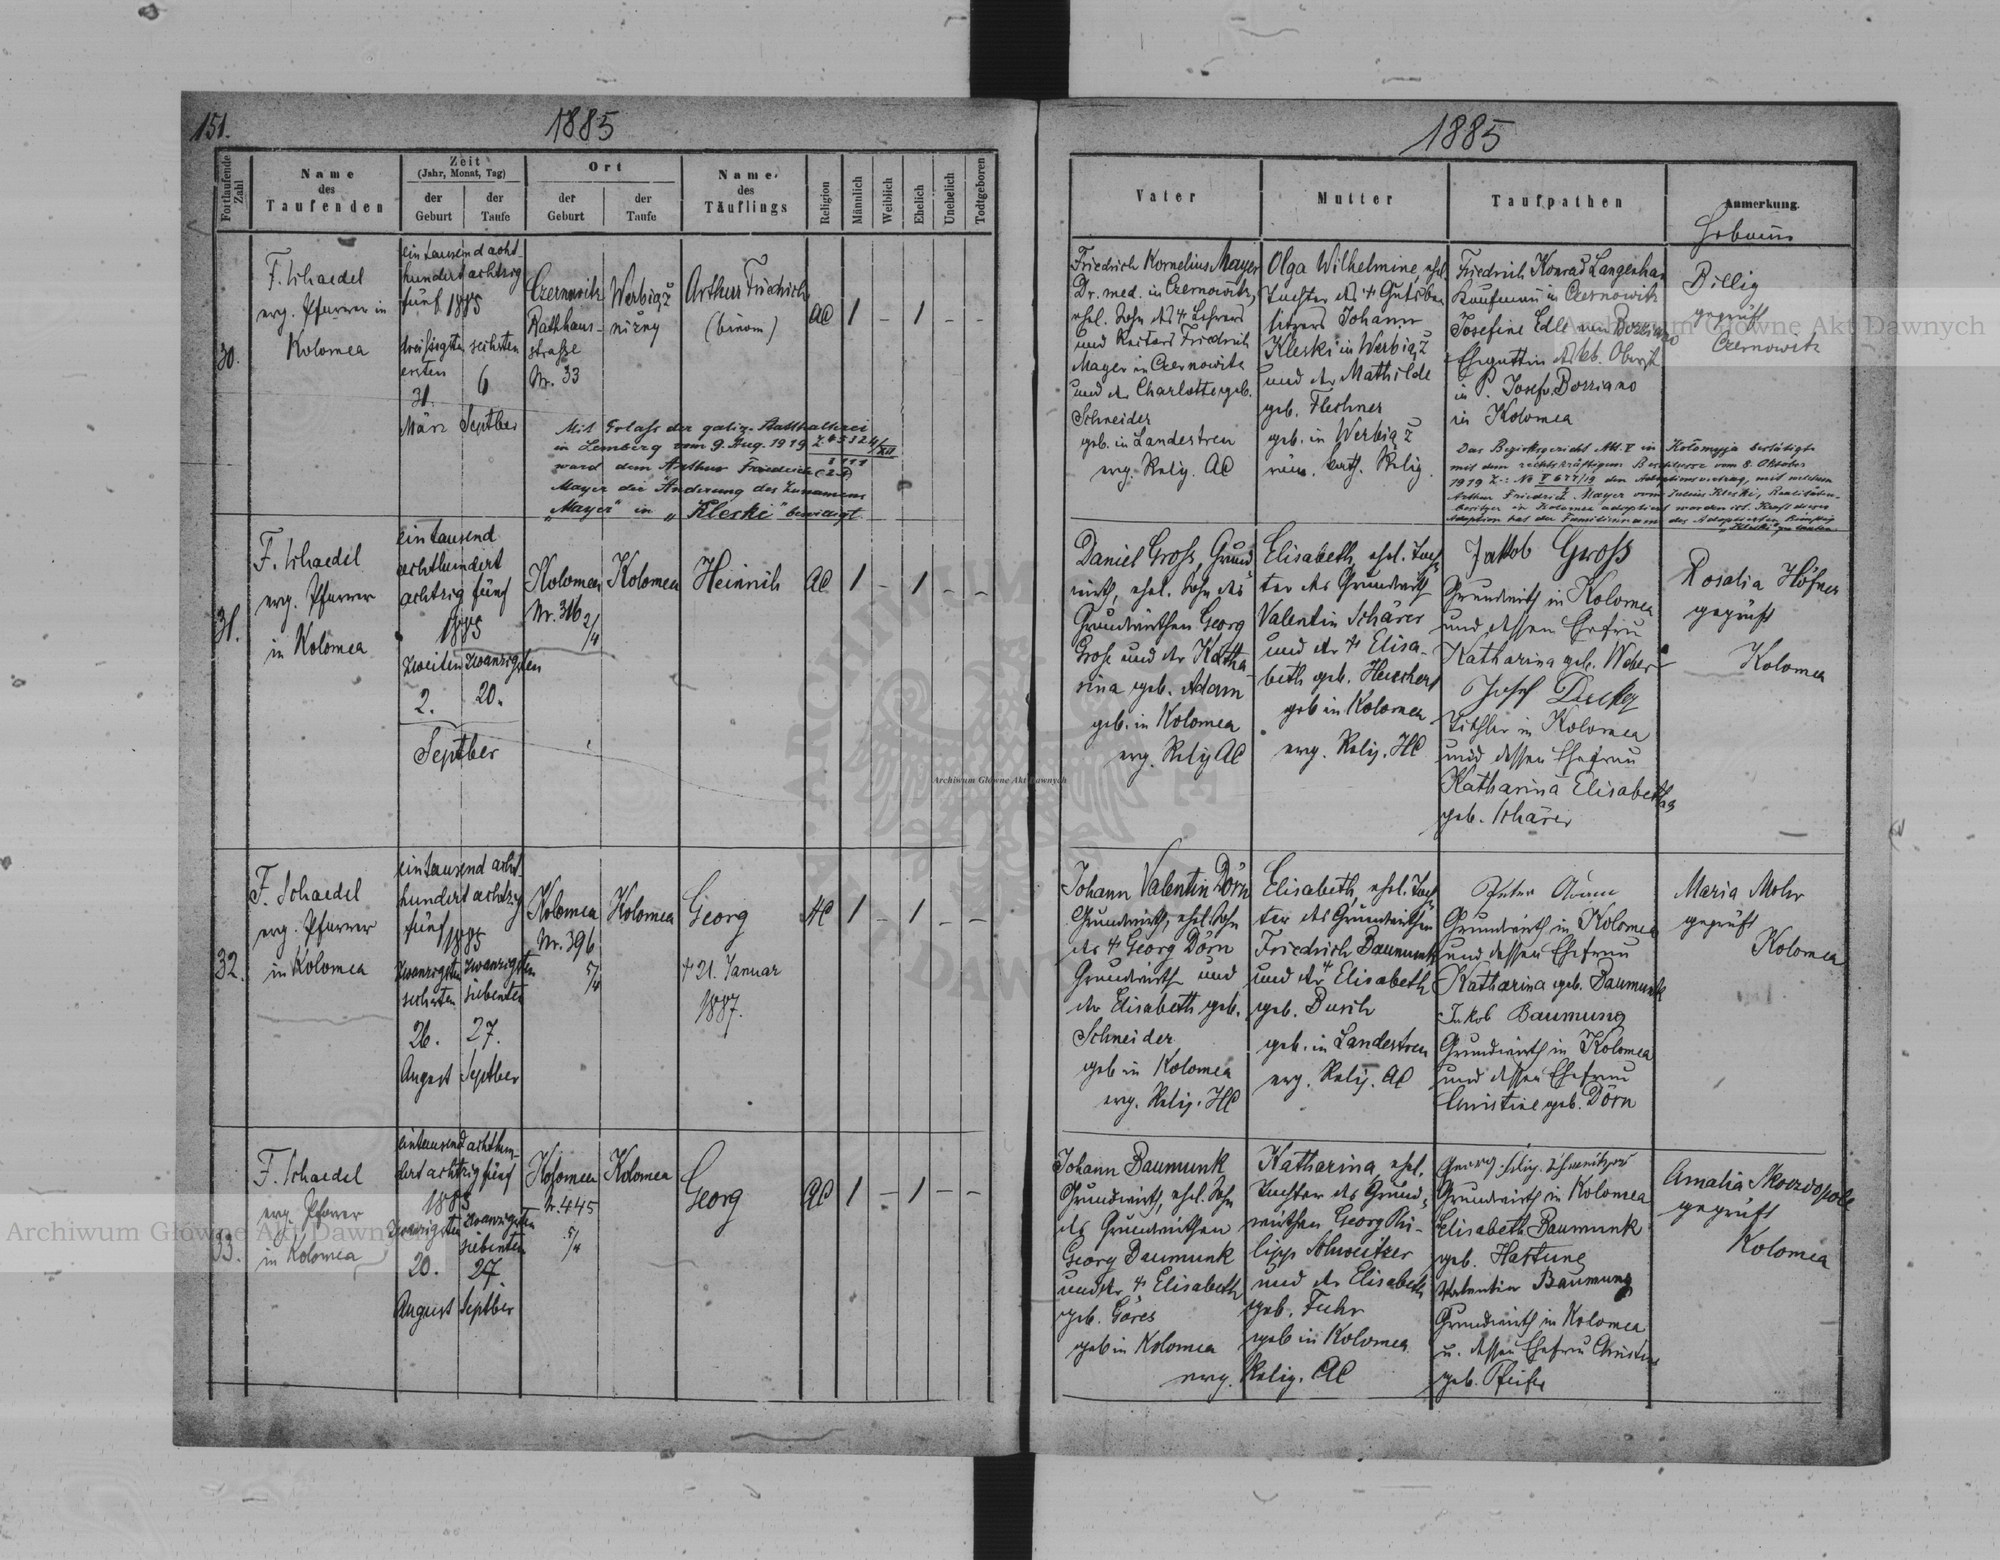 151.
1885
Fortlaufende Zahl
Name
des
Taufenden
Zeit
(Jahr, Monat, Tag)
der
Geburt
der
Taufe
Ort
der
Geburt
der
Taufe
Name
des
Täuflings
Religion
Männlich
Weiblich
Ehelich
Unehelich
Todtgeboren
30.
F. Schaedel
evg. Pfarrer in
Kolomea
eintausend acht-
hundert achtzig
fünf 1885
dreissigsten
ersten
31.
März
sechsten
6
Septber
Czernowitz
Rathhaus-
strasse
Nr. 33
Werbiąż
niżny
Arthur Friedrich
(binom)
AC
1
–
1
–
–
Mit Erlass der galiz. Statthalterei
in Lemberg vom 9. Aug. 1919
ward dem Arthur Friedrich (2 N)
Mayer die Änderung des Zunamens
„Mayer" in „Kleski" bewilligt
31.
F. Schaedel
evg. Pfarrer
in Kolomea
eintausend
achthundert
achtzig fünf
1885
zweiten zwanzigsten
2. 20.
Septber
Kolomea
Nr. 316
2/4
Kolomea
Heinrich
AC
1
–
1
–
–
32.
F. Schaedel
evg. Pfarrer
in Kolomea
eintausend acht-
hundert achtzig
fünf 1885
zwanzigsten zwanzigsten
sechsten siebenten
26. 27.
August Septber
Kolomea
Nr. 396
5/4
Kolomea
Georg
† 21. Januar
1887.
HC
1
–
1
–
–
33.
F. Schaedel
evg. Pfarrer
in Kolomea
eintausend achthun-
dert achtzig fünf
1885
zwanzigsten zwanzigsten
siebenten
20. 27.
August Septber
Kolomea
N. 445
5/4
Kolomea
Georg
AC
1
–
1
–
–
1885
Vater
Mutter
Taufpathen
Anmerkung.
Hebamme
Friedrich Kornelius Mayer
Dr. med. in Czernowitz,
ehel. Sohn des † Lehrers
und Rectors Friedrich
Mayer in Czernowitz
und der Charlotte geb.
Schneider
geb. in Landestreu
evg. Relig. AC
Olga Wilhelmine, ehel.
Tochter des † Gutsbe-
sitzers Johann
Kleski in Werbiąż
und der Mathilde
geb. Flechner
geb. in Werbiąż
röm. kath. Relig.
Friedrich Konrad Langenhan
Kaufmann in Czernowitz
Josefine Edle von Borziano
Ehegattin des kk. Oberst
in P. Josef Borziano
in Kolomea
Billig
geprüft
Czernowitz
Das Bezirksgericht Abt. V in Kołomyja bestätigte
mit dem rechtskräftigen Beschlusse vom 8. Oktober
1919 Z.: Nc V 677/19 den Adoptionsvertrag, mit welchem
Arthur Friedrich Mayer vom Julius Kleski, Realitäten-
besitzer in Kolomea adoptiert worden ist. Kraft dieser
Adoption hat der Familienname des Adoptierten künftig
„Kleski" zu lauten
Daniel Gross, Grund-
wirth, ehel. Sohn des
Grundwirthen Georg
Gross und der Katha-
rina geb. Adam
geb. in Kolomea
evg. Relig AC
Elisabeth, ehel. Toch-
ter des Grundwirth
Valentin Schärer
und der † Elisa-
beth geb. Heuchert
geb in Kolomea
evg. Relig. HC
Jakob Gross
Grundwirth in Kolomea
und dessen Ehefrau
Katharina geb. Weber
Josef Decker
Tischler in Kolomea
und dessen Ehefrau
Katharina Elisabetha
geb. Schärer
Rosalia Höfner
geprüft
Kolomea
Johann Valentin Dörn
Grundwirth, ehel. Sohn
des † Georg Dörn
Grundwirth und
der Elisabeth geb.
Schneider
geb in Kolomea
evg. Relig. HC
Elisabeth, ehel. Toch-
ter des Grundwirthen
Friedrich Baumunk
und der † Elisabeth
geb. Busch
geb. in Landestreu
evg. Relig. AC
Grundwirth in Kolomea
und dessen Ehefrau
Katharina geb. Baumunk
Jakob Baumung
Grundwirth in Kolomea
und dessen Ehefrau
Christine geb. Dörn
Maria Mohr
geprüft
Kolomea
Johann Baumunk
Grundwirth, ehel. Sohn
des Grundwirthen
Georg Baumunk
und der † Elisabeth
geb. Göres
geb in Kolomea
evg. Relig. AC
Katharina, ehel.
Tochter des Grund-
wirthen Georg Phi-
lipp Schweitzer
und der Elisabeth
geb. Fuhr
geb in Kolomea
Georg Filip Schweitzer
Grundwirth in Kolomea
Elisabeth Baumunk
geb. Hartung
Valentin Baumung
Grundwirth in Kolomea
u. dessen Ehefrau Christine
geb. Pfeifer
Amalia Skozdopole
geprüft
Kolomea
Archiwum Główne Akt Dawnych
Archiwum Główne Akt Dawnych
Archiwum Główne Akt Dawnych